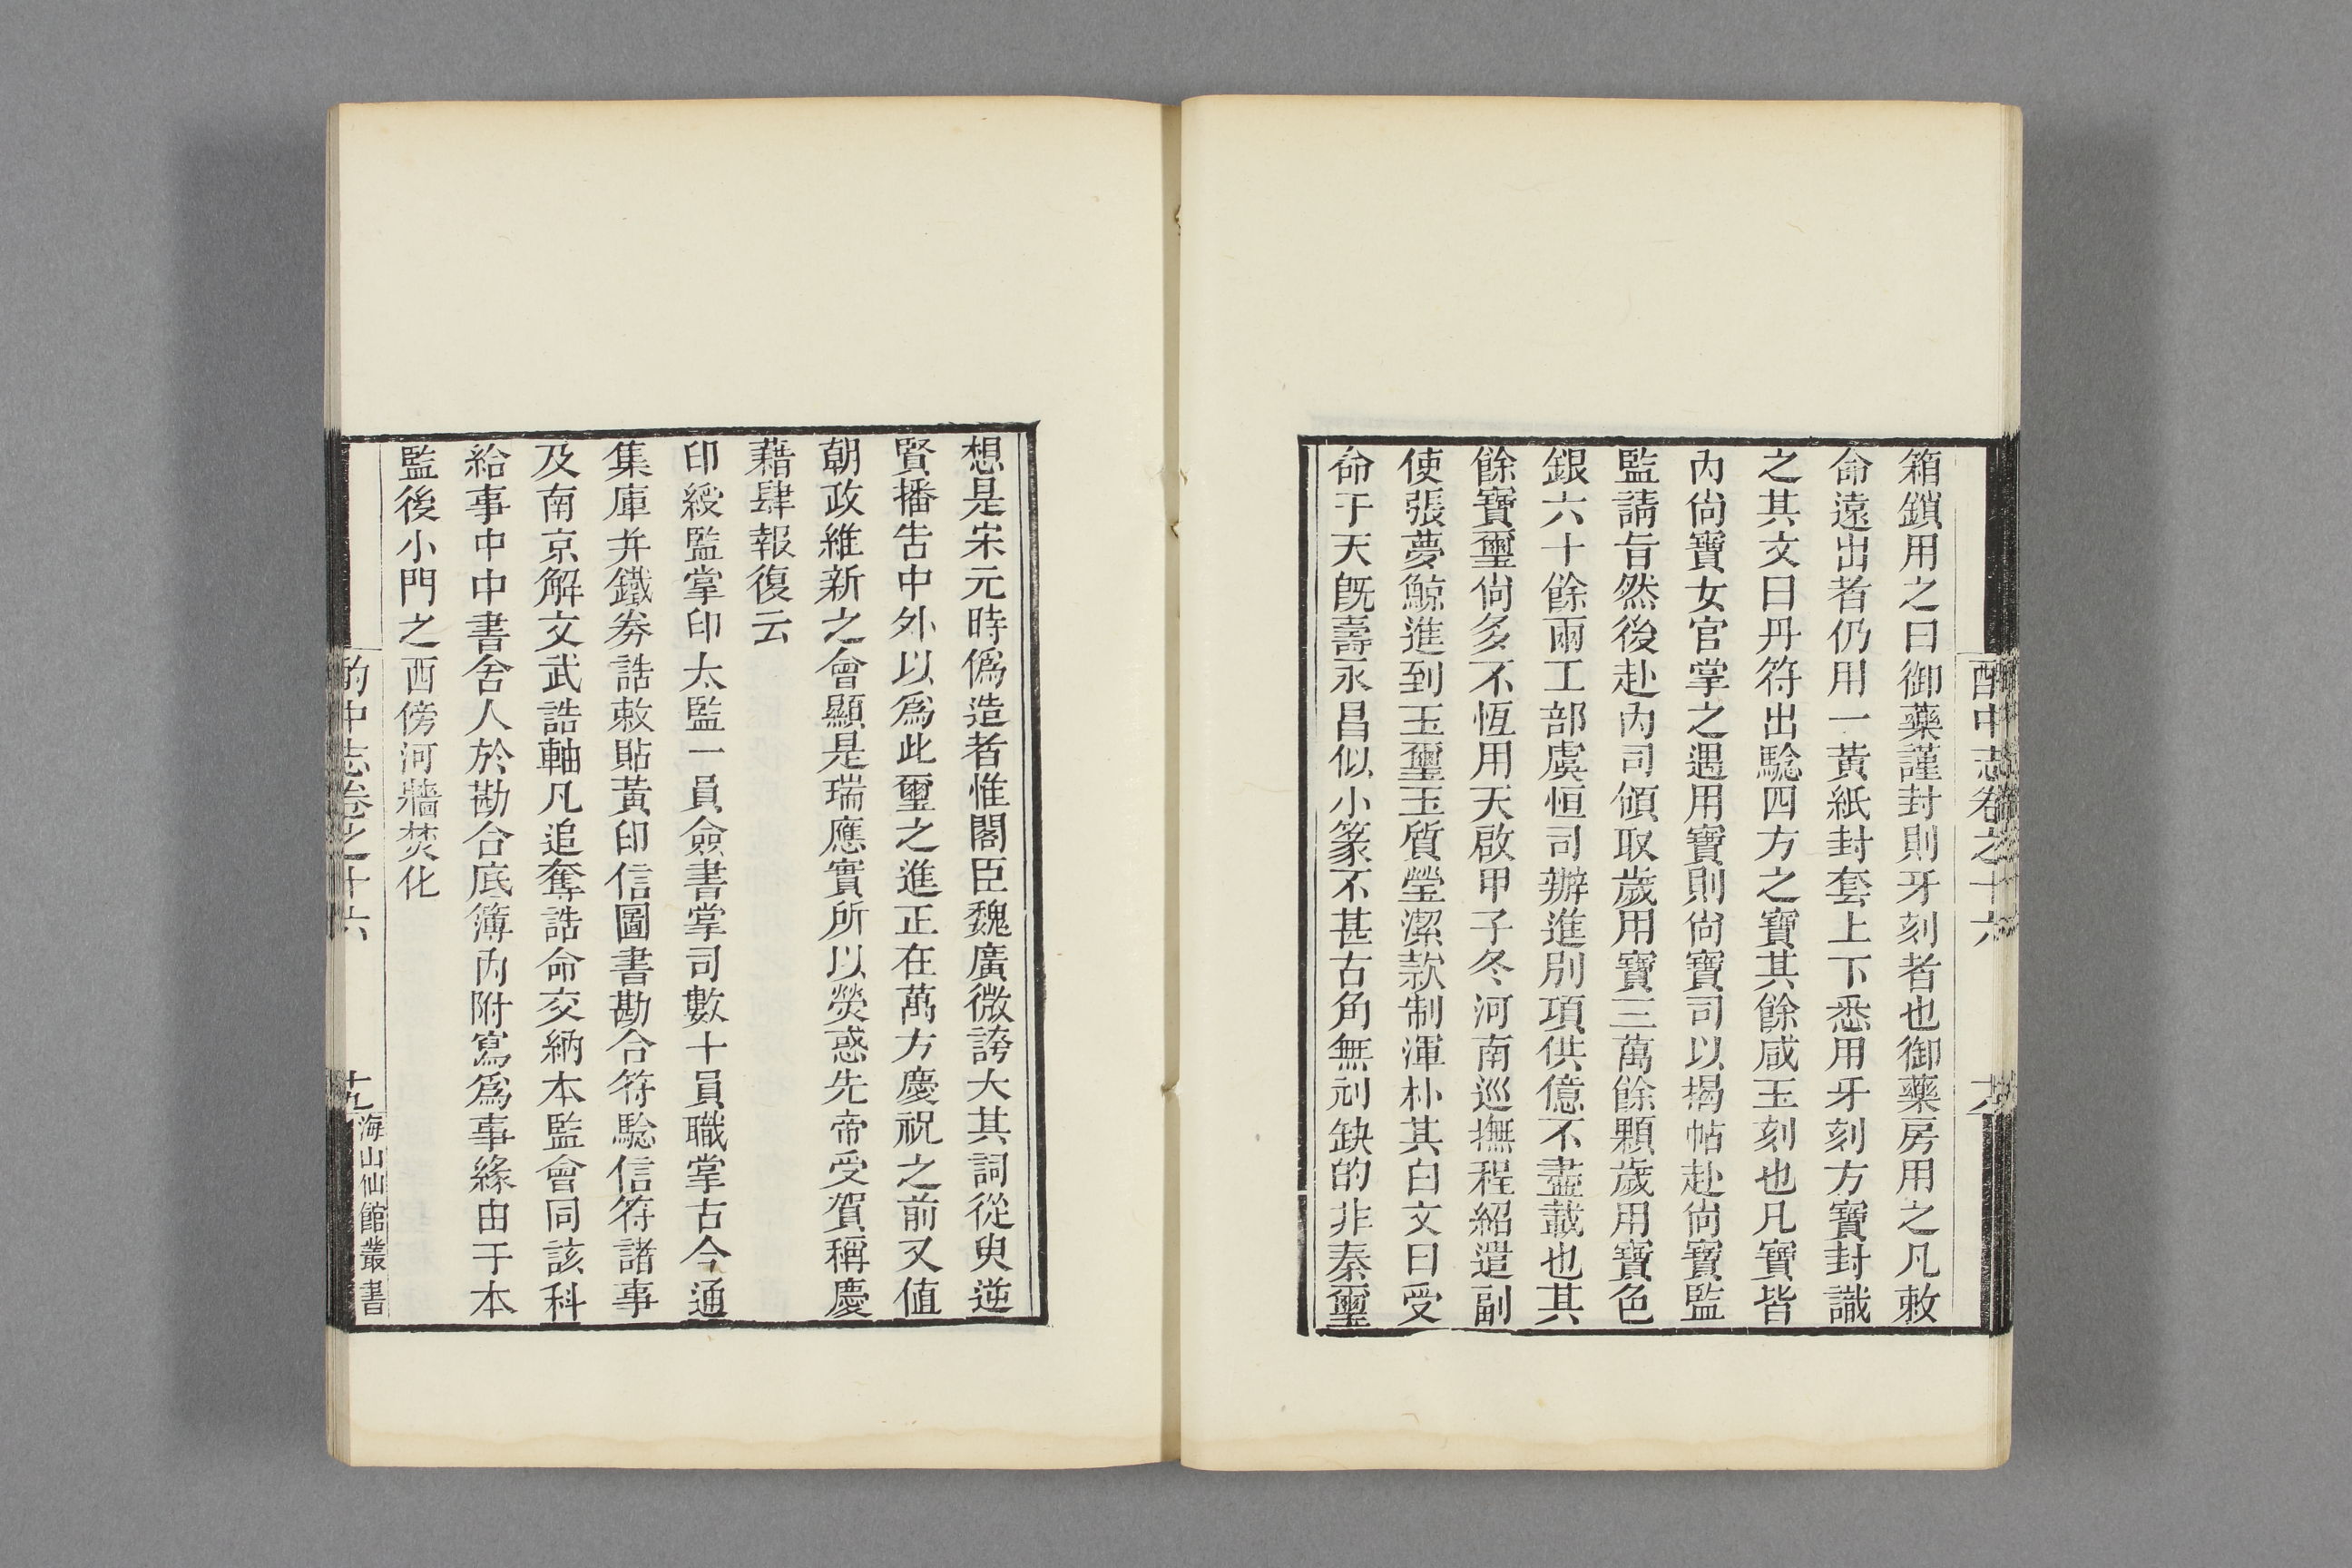 酌中志卷之十六
箱鎖用之曰御藥謹封則牙刻者也御藥房用之凡敕
命遠出者仍用一黃紙封套上下悉用牙刻方寶封識
之其文曰丹符出驗四方之寶其餘咸玉刻也凡寶皆
內尙寶女官掌之遇用寶則尙寶司以揭帖赴尙寶監
監請旨然後赴內司領取歲用寶三萬餘顆歲用寶色
銀六十餘兩工部虞恒司辦進別項供億不盡載也其
餘寶璽尙多不恆用天啟甲子冬河南巡撫程紹遣副
使張夢鯨進到玉璽玉質瑩潔款制渾朴其白文曰受
命于天旣壽永昌似小篆不甚古角無刓缺的非秦璽
想是宋元時僞造者惟閣臣魏廣微誇大其詞從臾逆
賢播告中外以爲此璽之進正在萬方慶祝之前又值
朝政維新之會顯是瑞應實所以熒惑先帝受賀稱慶
藉肆報復云
印綬監掌印太監一員僉書掌司數十員職掌古今通
集庫并鐵券誥敕貼黃印信圖書勘合符驗信符諸事
及南京解文武誥軸凡追奪誥命交納本監會同該科
給事中中書舍人於勘合底簿內附寫爲事緣由于本
監後小門之西傍河牆焚化
酌中志卷之十六
十九
海山仙館叢書